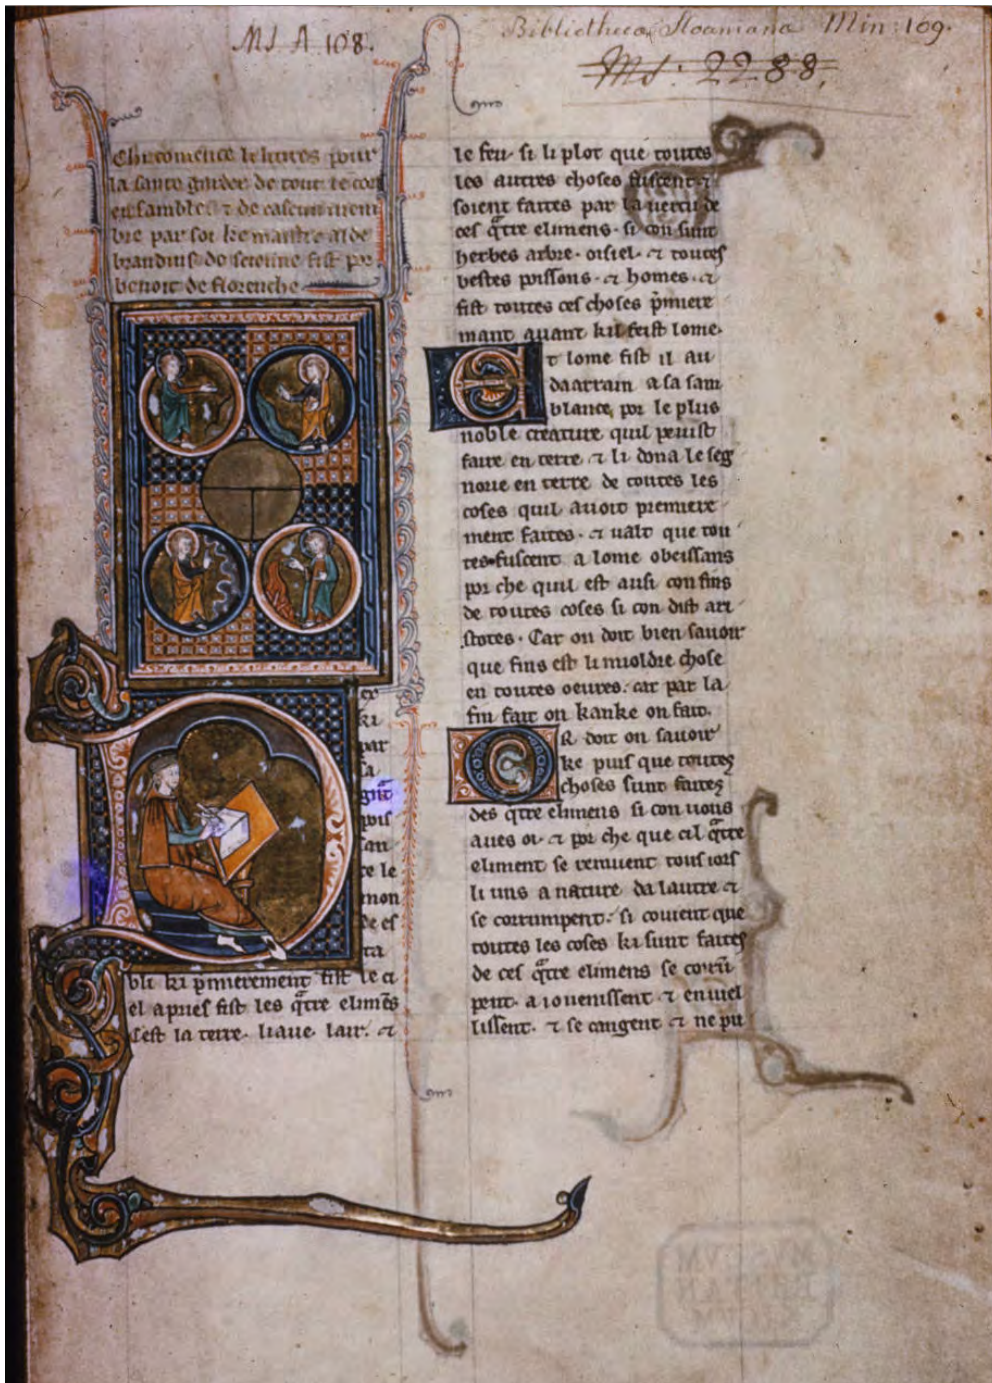 MS A 108.
Bibliotheca Sloaniana Min: 109.
Ms: 2288.
Chi comence li liures pour
la sante garder de tout le cors
ensamble ⁊ de cascun mem
bre par soi ke maistre alde
brandins de scienne fist por
benoit de florenche
ki
par
sa
puis
san
te le
non
de es
ta
bli ki p̄mierement fist le ci
el apries fist les q̃tre elimēs
Cest la terre. liaue. lair. ⁊
le feu. si li plot que toutes
les autres choses fuscent ⁊
soient faites par la uertu de
ces q̃tre elimens. si con sunt
herbes arbre. oisiel. ⁊ toutes
bestes poissons. ⁊ homes. ⁊
fist toutes ces choses p̄miere
mant auant kil feist lome.
Et lome fist il au
daarrain a sa sam
blance, por le plus
noble creature quil peuist
faire en terre. ⁊ li dona le seg
norie en terre de toutes les
coses quil auoit premiere
ment faites. ⁊ ualt que tou
tes fuscent a lome obeissans
por che quil est ausi con fins
de toutes coses si con dist ari
stotes. Car on doit bien sauoir
que fins est li mioldre chose
en toutes oeures. car par la
fin fait on kanke on fait.
OR doit on sauoir
ke puis que toutes
choses sunt faites
des q̃tre elimens si con uous
aues oi. ⁊ por che que cil q̃tre
eliment se remuent tous iors
li uns a nature da lautre ⁊
se corrumpent. si couient que
toutes les coses ki sunt faites
de ces q̃tre elimens se corrū
pent. a iouenissent. ⁊ enuiel
lissent. ⁊ se cangent ⁊ ne pu
MVSEVM
BRITAN
NICVM